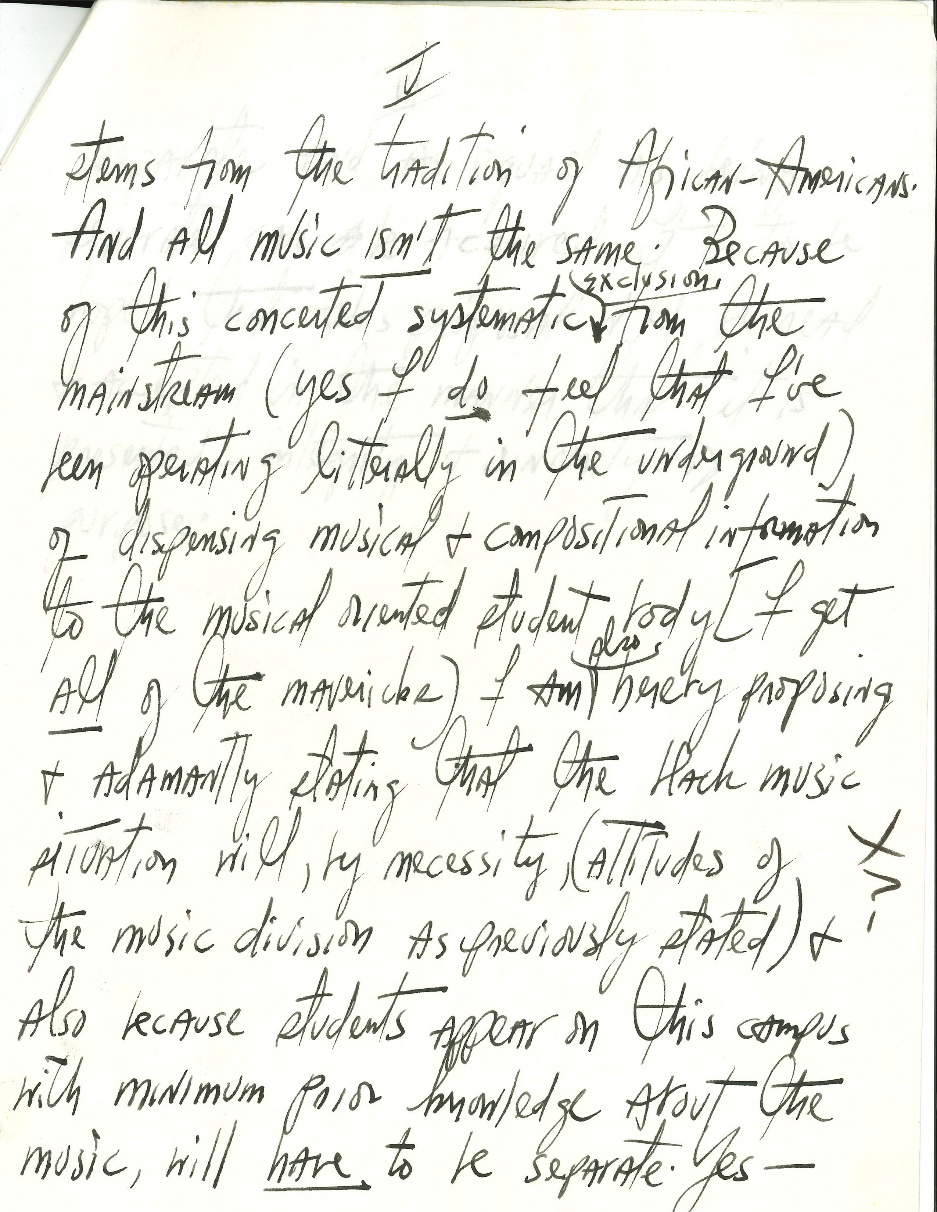 V
stems from the tradition of African-Americans.
And all music isn't the same. Because
exclusion
of this concerted systematic from the
mainstream (yes I do feel that I've
been operating litterally in the underground)
of dispensing musical & compositional information
to the musical oriented student body [I get
also
all of the mavericks) I am hereby proposing
& adamantly stating that the Black music
situation will, by necessity, (attitudes of
the music division as previously stated) &
also because students appear on this campus
with minimum prior knowledge about the
music, will have to be separate. Yes —